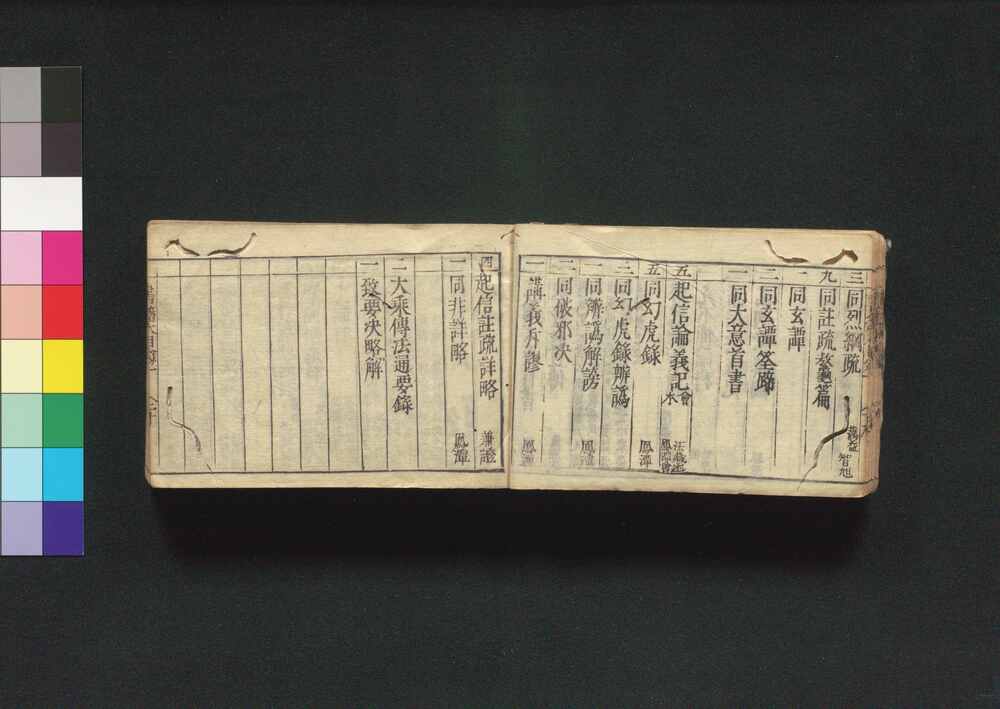 三 同烈綱疏 智旭
九 同註疏 篇
一 同玄譚
二 同玄譚筌蹄
一 同大意首書
五 起信論義記 會本 鳳潭
五 同幻虎錄 鳳潭
三 同幻虎錄辨譌
一 同辨譌解謗 鳳潭
二 同 邪决
一 講義斥謬 鳳潭
四 起信註疏詳略 兼證
一 同非詳略 鳳潭
二 大乘傳法通要錄
一 致要决略解